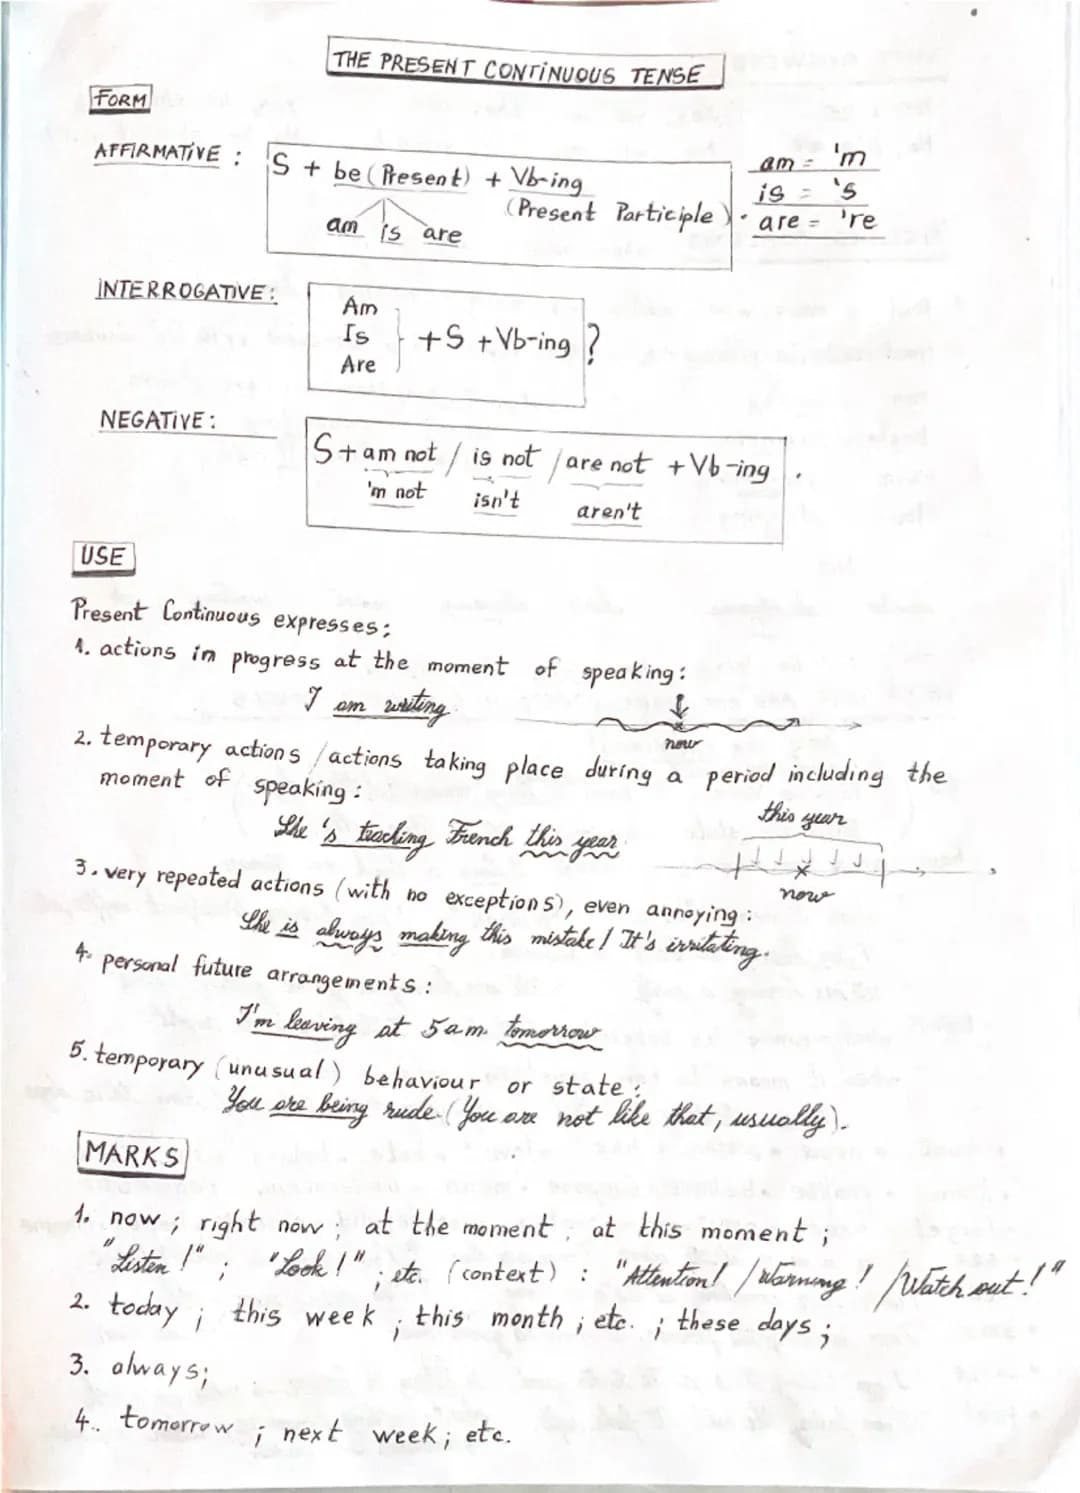 THE PRESENT CONTINUOUS TENSE
FORM
AFFIRMATIVE : S + be (Present) + Vb-ing
(Present Participle).
am is are
am = 'm
is = 's
are = 're
INTERROGATIVE:
Am
Is
Are
+ S + Vb-ing ?
NEGATIVE:
S + am not / is not / are not + Vb-ing .
'm not isn't aren't
USE
Present Continuous expresses:
1. actions in progress at the moment of speaking:
I am writing.
now
2. temporary actions / actions taking place during a period including the
moment of speaking:
She's teaching French this year.
this year
now
3. very repeated actions (with no exceptions), even annoying:
She is always making this mistake! It's irritating.
4. personal future arrangements:
I'm leaving at 5 a.m. tomorrow
5. temporary (unusual) behaviour or state:
You are being rude. (You are not like that, usually).
MARKS
1. now; right now; at the moment; at this moment;
"Listen!"; "Look!"; etc. (context) : "Attention! / Warning! / Watch out!"
2. today; this week; this month; etc.; these days;
3. always;
4. tomorrow; next week; etc.